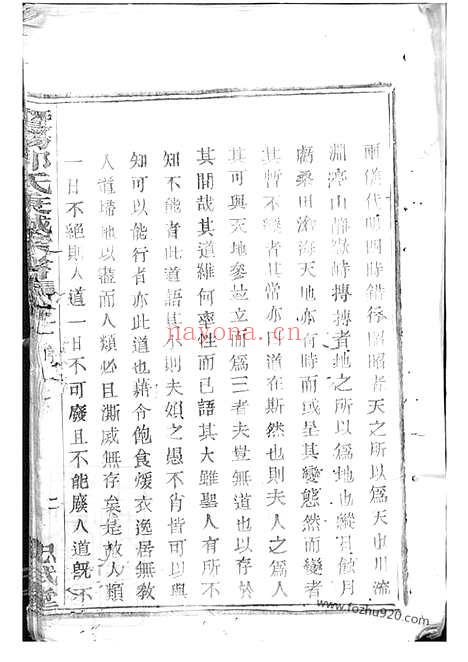 兩儀代明四時錯行昭昭者天之所以爲天也川流
淵渟山靜嶽峙摶摶者地之所以爲地也縱日蝕月
虧桑田滄海天地亦有時而或呈其變態然而變者
其暫不變者其常亦曰道在斯然也則夫人之爲人
其可與天地參並立而爲三者夫豈無也以存於
其間哉其道維何率性而已語其大雖聖人有所不
知不能者此道語其小則夫婦之愚不肖皆可以與
知可以能行者亦此道也藉令飽食煖衣逸居無教
人道掃地以盡而人類必且澌滅無存矣是故人類
一日不絕則人道一日不可廢且不能廢人道旣不
氏
二
nayona.cn
www.fozhu920.com